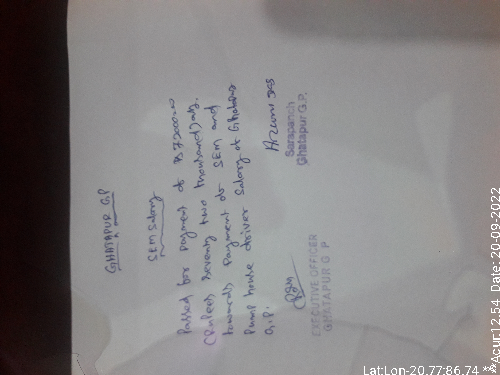 GHATAPUR G.P
SEM Salary
Passed for payment of Rs 72000=00
(Rupees Seventy two thousand) only.
towards Payment do SEM and
Pump house driver Salary of Ghatapur
G.P.
Sarapanch
Ghatapur G.P.
EXECUTIVE OFFICER
GHATAPUR G P
Lat:Lon-20.77:86.74 **Acur:12.54 Date: 20-09-2022